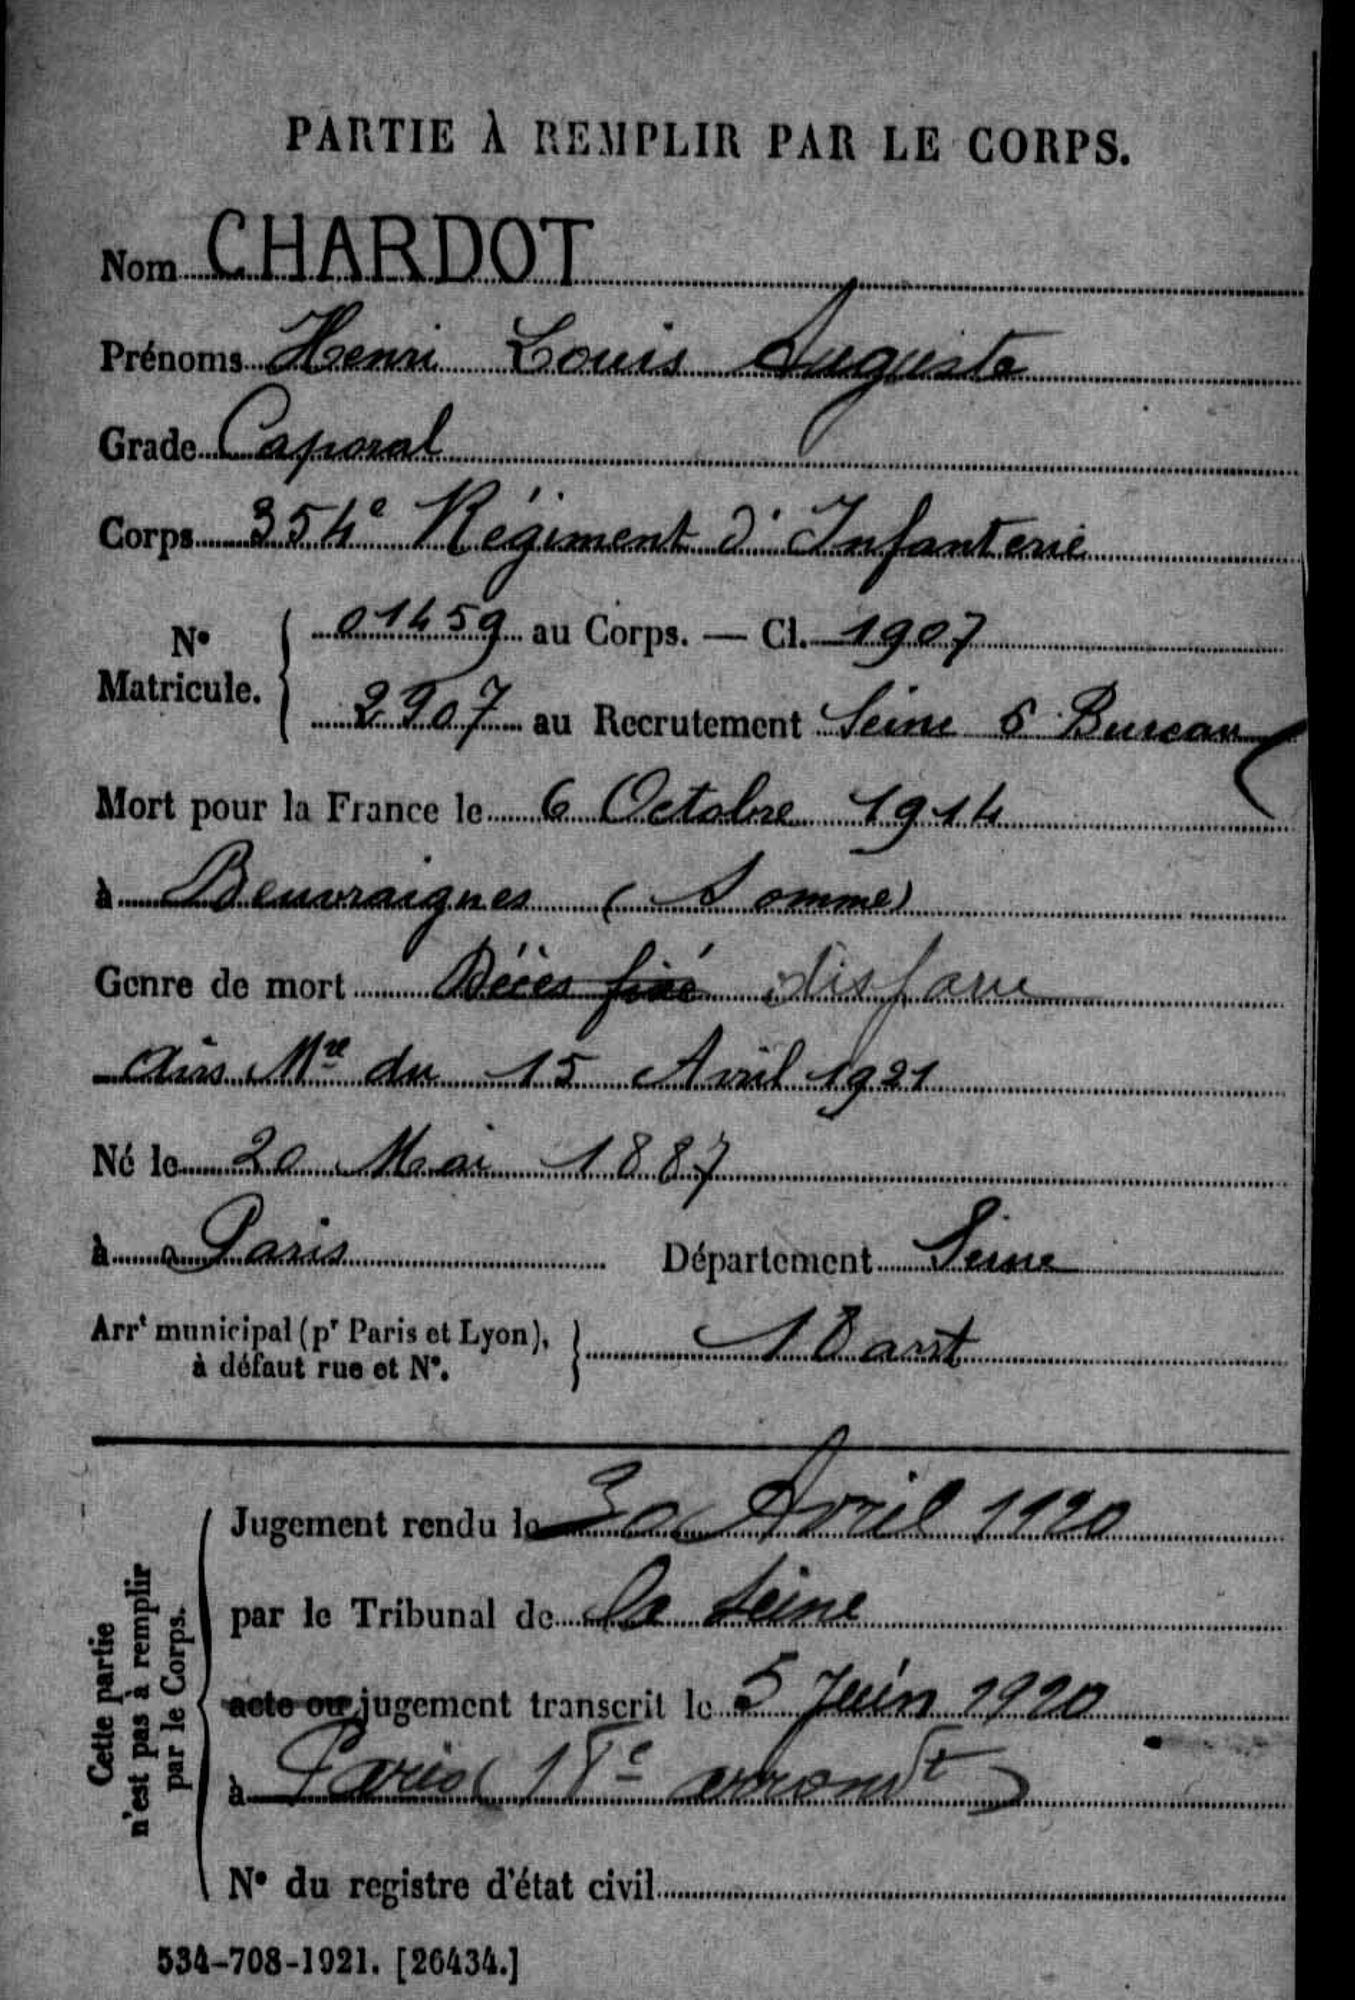 PARTIE À REMPLIR PAR LE CORPS.
Nom CHARDOT
Prénoms Henri Louis Auguste
Grade Caporal
Corps 354e Régiment d'Infanterie
N° Matricule. { 01459 au Corps. — Cl. 1907
2907 au Recrutement Seine 6 Bureau
Mort pour la France le 6 Octobre 1914
à Beuvraignes (Somme)
Genre de mort Décès fixé disparu
avis Mel du 15 Avril 1921
Né le 20 Mai 1887
à Paris Département Seine
Arrt municipal (pr Paris et Lyon), à défaut rue et N°. } 18 arrt
Cette partie n'est pas à remplir par le Corps.
Jugement rendu le 30 Avril 1920
par le Tribunal de la Seine
acte ou jugement transcrit le 5 Juin 1920
à Paris (18e arrondt)
N° du registre d'état civil
534-708-1921. [26434.]